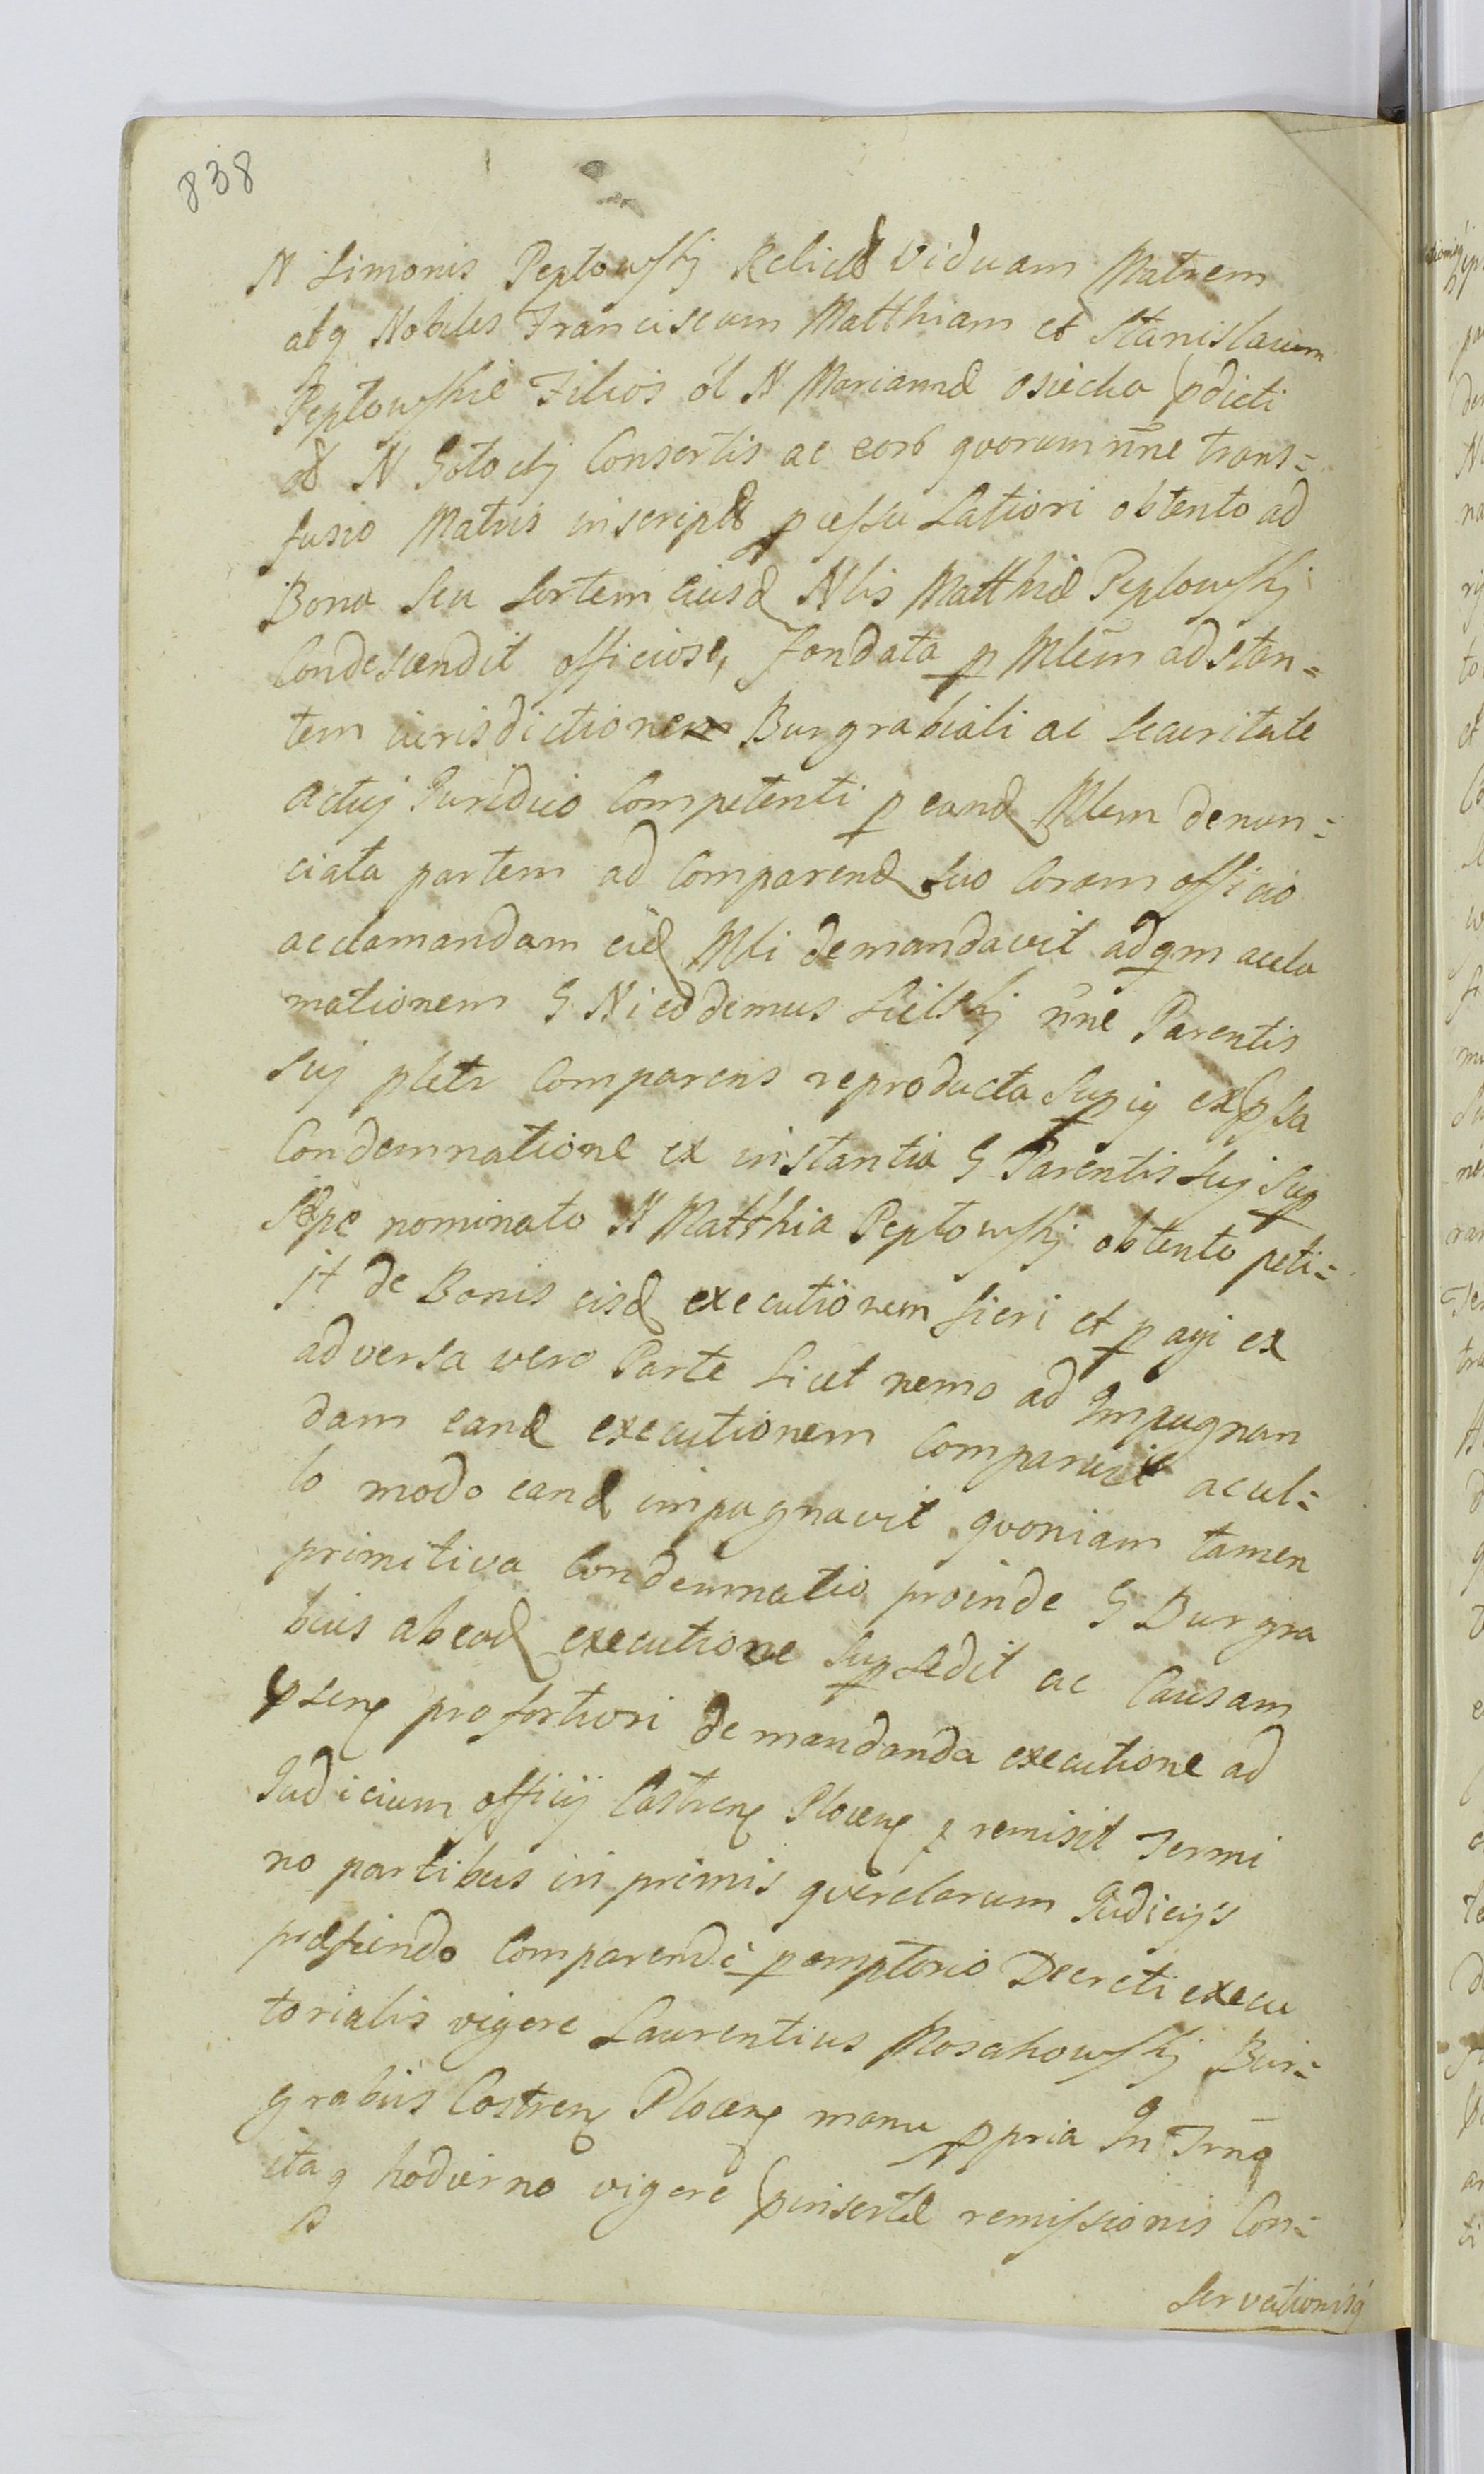 838
N Simonis Peptowskj Relictæ Viduam Matrem
atq Nobiles Franciscum Matthiam et Stanislaum
Peptowskie Filios ol N Mariannæ Osiecka pdicti
ol N Gotockj Consortis ac eor quorum nne trans=
fusio Matris inscriptæ pcessu Latiori obtento ad
Bona seu sortem eiusd Nlis Matthiæ Peplowskj
Condescendit officiose, fondata p Mlem adstan=
tem iurisdictione Burgrabiali ac securitate
actuj Juridico Competenti p eand Mlem denun=
ciata partem ad Comparend suo Coram officio
acclamandam eid Mli demandavit adqm accla
mationem G Nicodemus Sielskj nne Parentis
suj pltr Comparens reproducta supig expssa
Condemnatione ex instantia G Parentis suj sup
sæpe nominato N Matthia Peptowskj obtento peti=
jt de Bonis eisd executionem fieri et pagi ex
adversa vero Parte licet nemo ad Impugnan
dam eand executionem Comparuit ac ul=
lo modo eand impugnavit quoniam tamen
primitiva Condemnatio proinde G Burgra
bius ab ead executione supsedit ac Causam
psen pro fortiori demandanda executione ad
Judicium officij Castren Plocen remisit Termi
no partibus in primis querelarum Judicijs
præfiendo Comparendi pemptorio Decreti execu
torialis vigore Laurentius Rosakowskj Bur=
grabius Castren Plocen manu ppria In Trno
itaq hodierno vigore pinsertæ remissionis Con=
servationisq